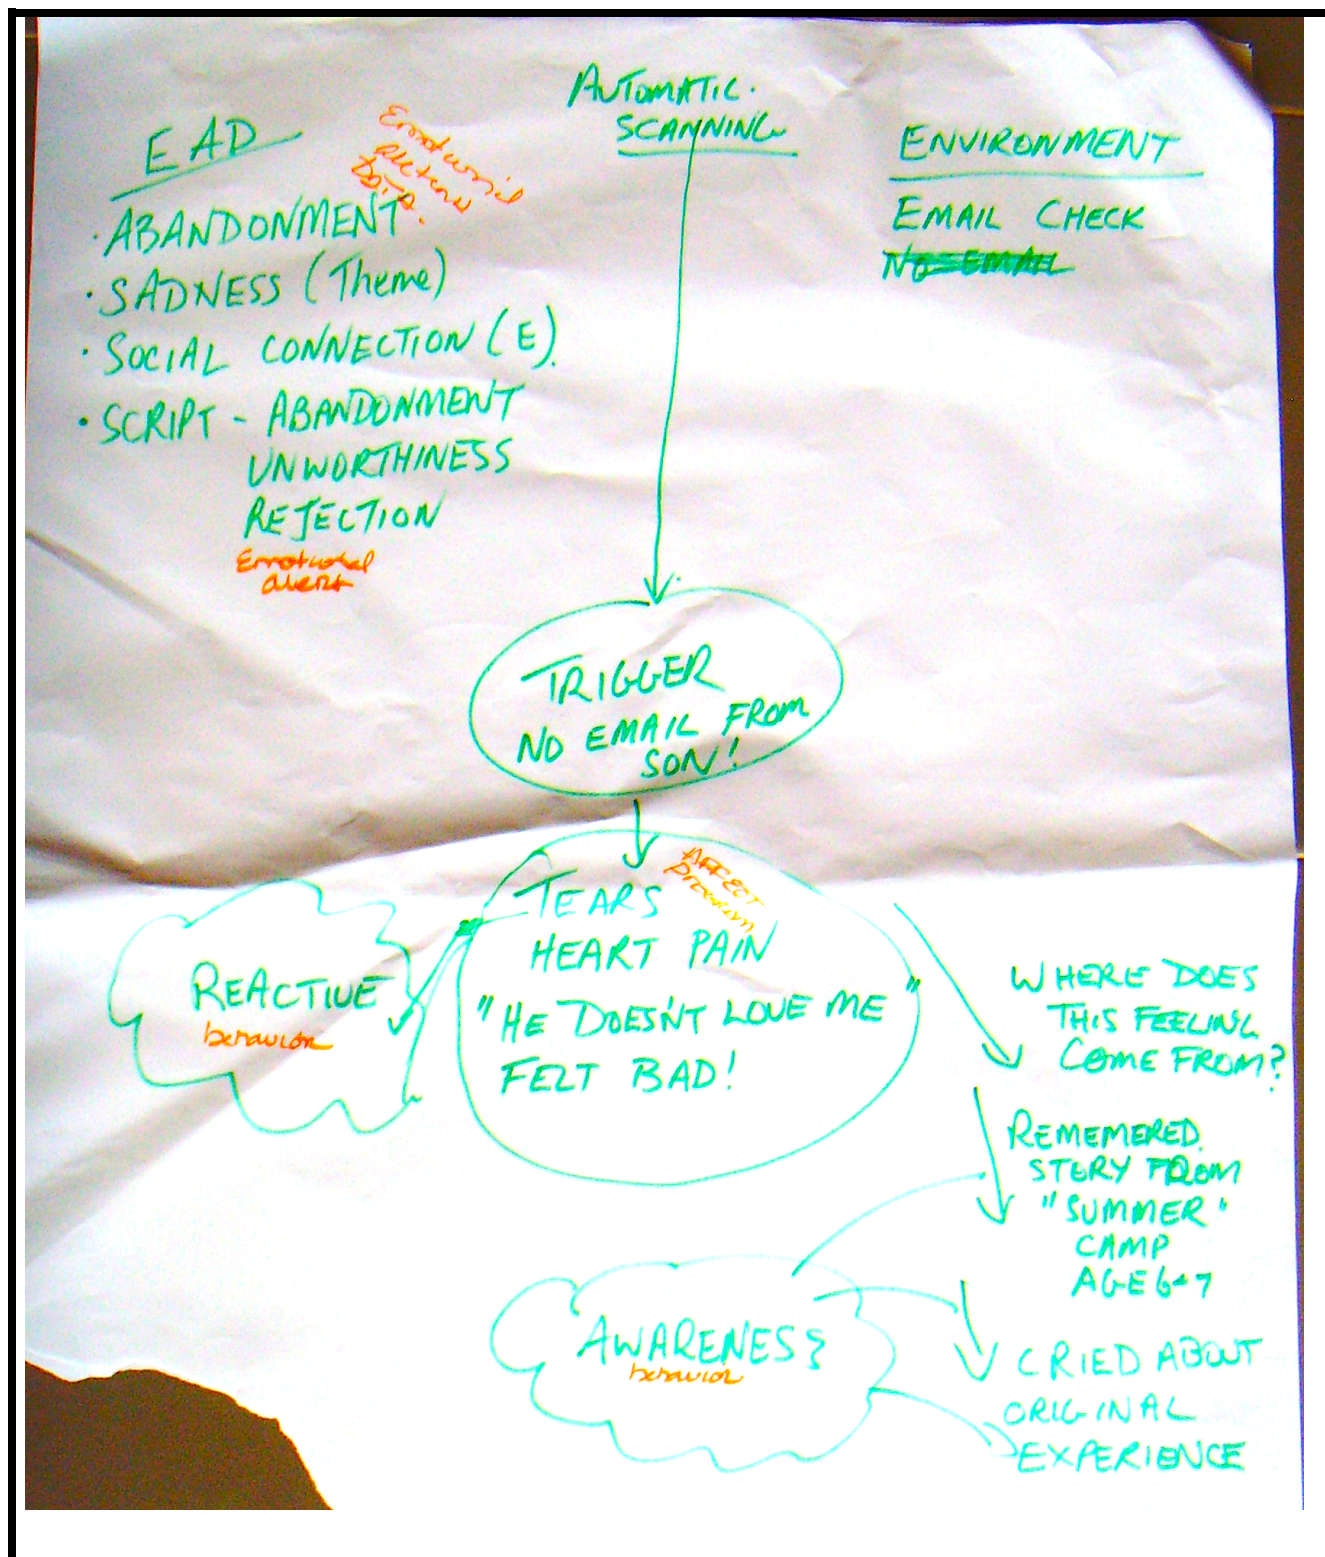 AUTOMATIC.
SCANNING
EAD
Emotional
alert
Data.
· ABANDONMENT
· SADNESS (Theme)
· SOCIAL CONNECTION (E).
· SCRIPT - ABANDONMENT
UNWORTHINESS
REJECTION
Emotional
alert
ENVIRONMENT
EMAIL CHECK
NO EMAIL
TRIGGER
NO EMAIL FROM
SON!
AFFECT
Program
TEARS
HEART PAIN
"HE DOESN'T LOVE ME"
FELT BAD!
REACTIVE
behavior
WHERE DOES
THIS FEELING
COME FROM?
REMEMERED
STORY FROM
"SUMMER"
CAMP
AGE 6-7
CRIED ABOUT
ORIGINAL
EXPERIENCE
AWARENESS
behavior